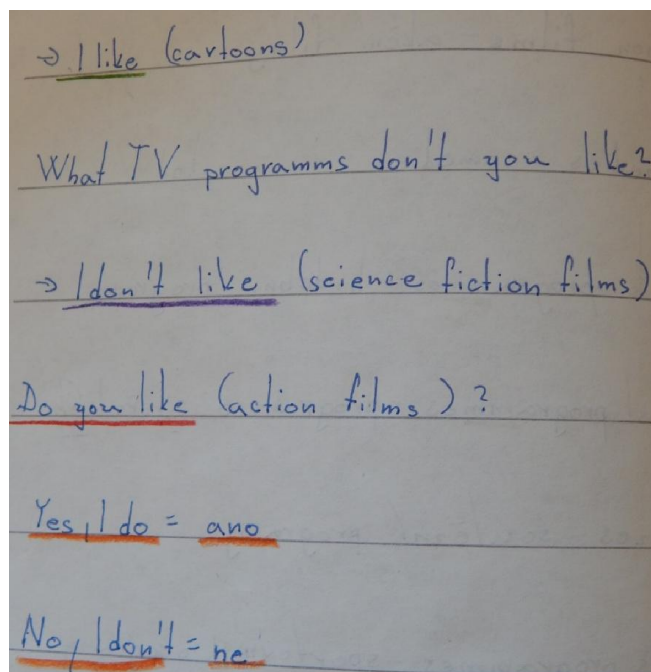 → I like (cartoons)
What TV programms don't you like?
→ I don't like (science fiction films)
Do you like (action films) ?
Yes, I do = ano
No, I don't = ne